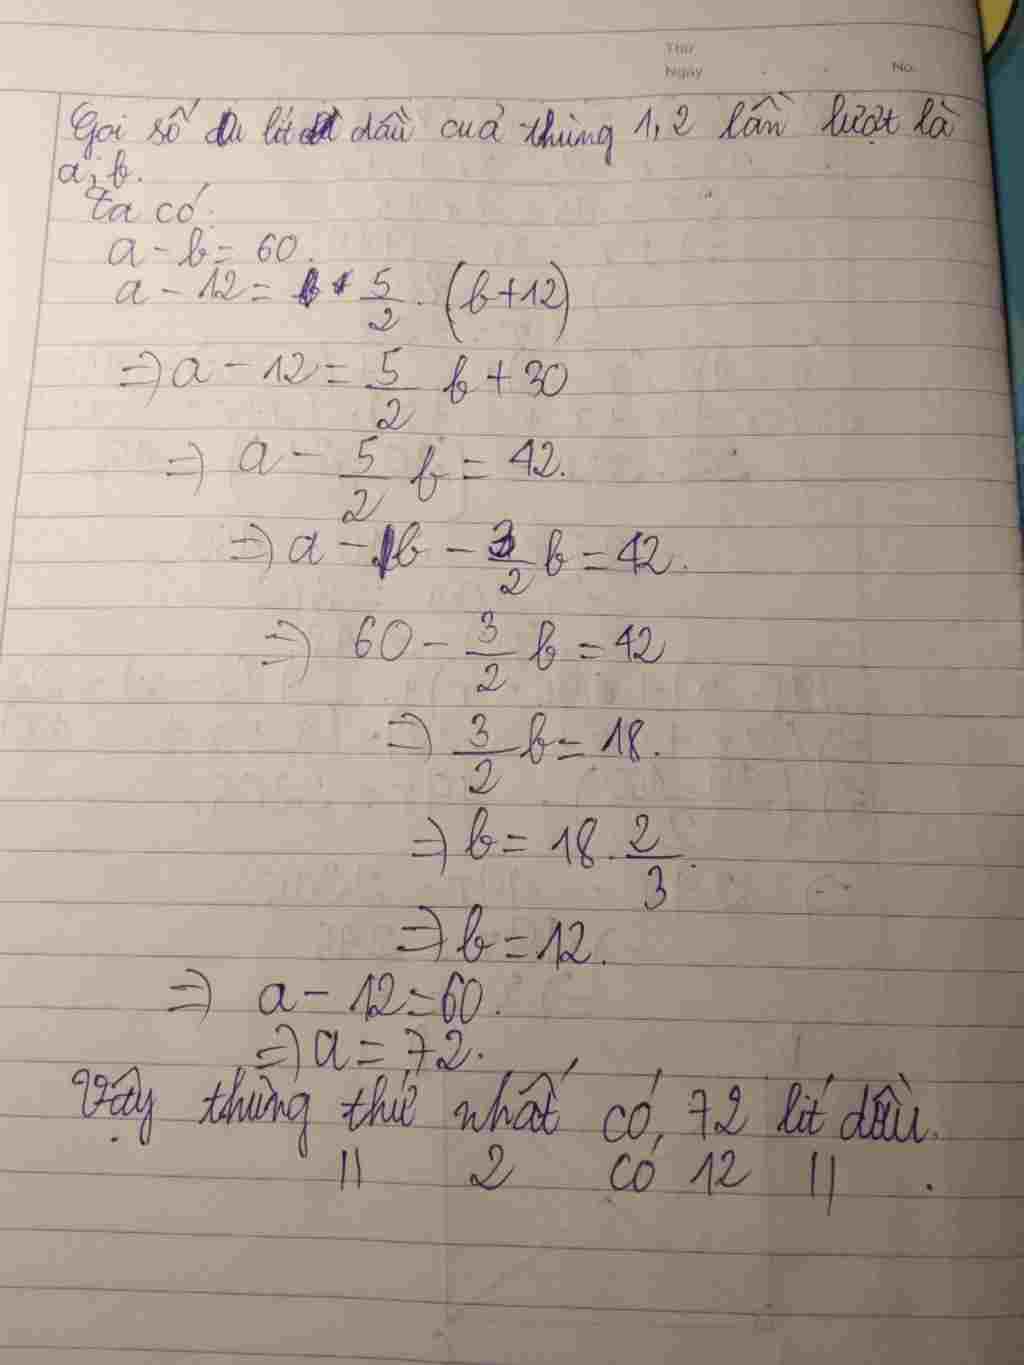 Thứ
Ngày No.
Gọi số lít dầu của thùng 1, 2 lần lượt là
a, b.
Ta có:
a - b = 60.
a - 12 = 5/2 . (b + 12)
=> a - 12 = 5/2 b + 30
=> a - 5/2 b = 42.
=> a - 1b - 3/2 b = 42.
=> 60 - 3/2 b = 42
=> 3/2 b = 18.
=> b = 18 . 2/3.
=> b = 12.
=> a - 12 = 60.
=> a = 72.
Vậy thùng thứ nhất có 72 lít dầu.
\\ 2 có 12 \\ .